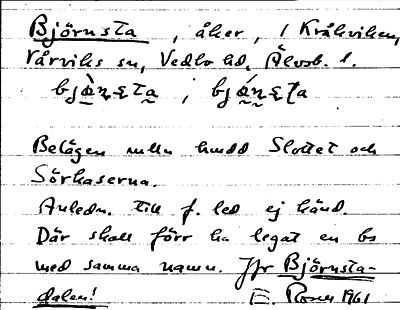 Björnsta, åker, i Kråkviken,
Vårviks sn, Vedbo hd, Älvsb. l.
bjὰn̰s̰ta̰, bjá̰n̰sta
Belägen mellan hudd Slottet och
Sörkaserna.
Anledn. till f. led ej känd.
Där skall förr ha legat en bs
med samma namn. Jfr Björnsta-
dalen! E. Rosen 1961